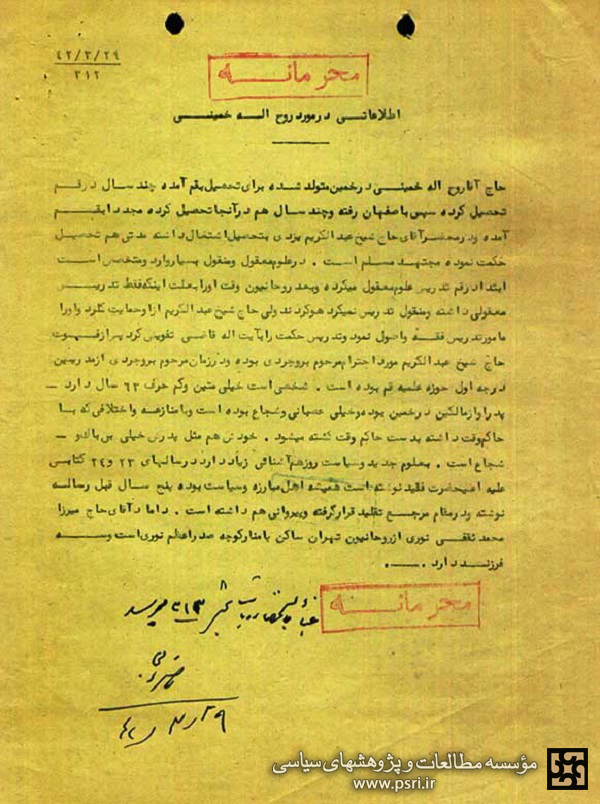 ۴۲/۳/۲۹
۳۱۲
محرمانه
اطلاعاتی درمورد روح اله خمینی
حاج آقاروح اله خمینی درخمین متولد شده برای تحصیل بقم آمده چند سال درقم
تحصیل کرده سپس باصفهان رفته وچند سال هم درآنجا تحصیل کرده مجددا بقم
آمده ودرمحضرآقای حاج شیخ عبدالکریم یزدی بتحصیل اشتغال داشته مدتی هم تحصیل
حکمت نموده مجتهد مسلم است . درعلوم معقول ومنقول بسیاروارد ومتخصص است
ابتدا درقم تدریس علوم معقول میکرده وبعد روحانیون وقت اورا بعلت اینکه فقط تدریس
معقولی داشته ومنقول تدریس نمیکرد هوکردند ولی حاج شیخ عبدالکریم ازاوحمایت کرد واورا
مامورتدریس فقه واصول نمود وتدریس حکمت را بآیت اله قاضی تفویض کرد پس ازفوت
حاج شیخ عبدالکریم مورد احترام مرحوم بروجردی بوده ودرزمان مرحوم بروجردی ازمدرسین
درجه اول حوزه علمیه قم بوده است . شخصی است خیلی متین وکم حرف ۶۳ سال دارد –
پدراوازمالکین درخمین بوده وخیلی عصبانی وشجاع بوده است وبامنازعه واختلافی که با
حاکم وقت داشته بدست حاکم وقت کشته میشود . خودش هم مثل پدرش خیلی بی باک و –
شجاع است . بعلوم جدید وسیاست روزهم آشنائی زیاد دارد درسالهای ۲۳ و۲۴ کتابی
علیه اعلیحضرت فقید نوشته است همیشه اهل مبارزه وسیاست بوده پنج سال قبل رساله
نوشته ودرمقام مرجع تقلید قرارگرفته وپیروانی هم داشته است . داماد آقای حاج میرزا
محمد ثقفی نوری ازروحانیون تهران ساکن پامنارکوچه صدراعظم نوری است وسه
فرزند دارد .
محرمانه
۴۲/۳/۲۹
مؤسسه مطالعات و پژوهشهای سیاسی
www.psri.ir